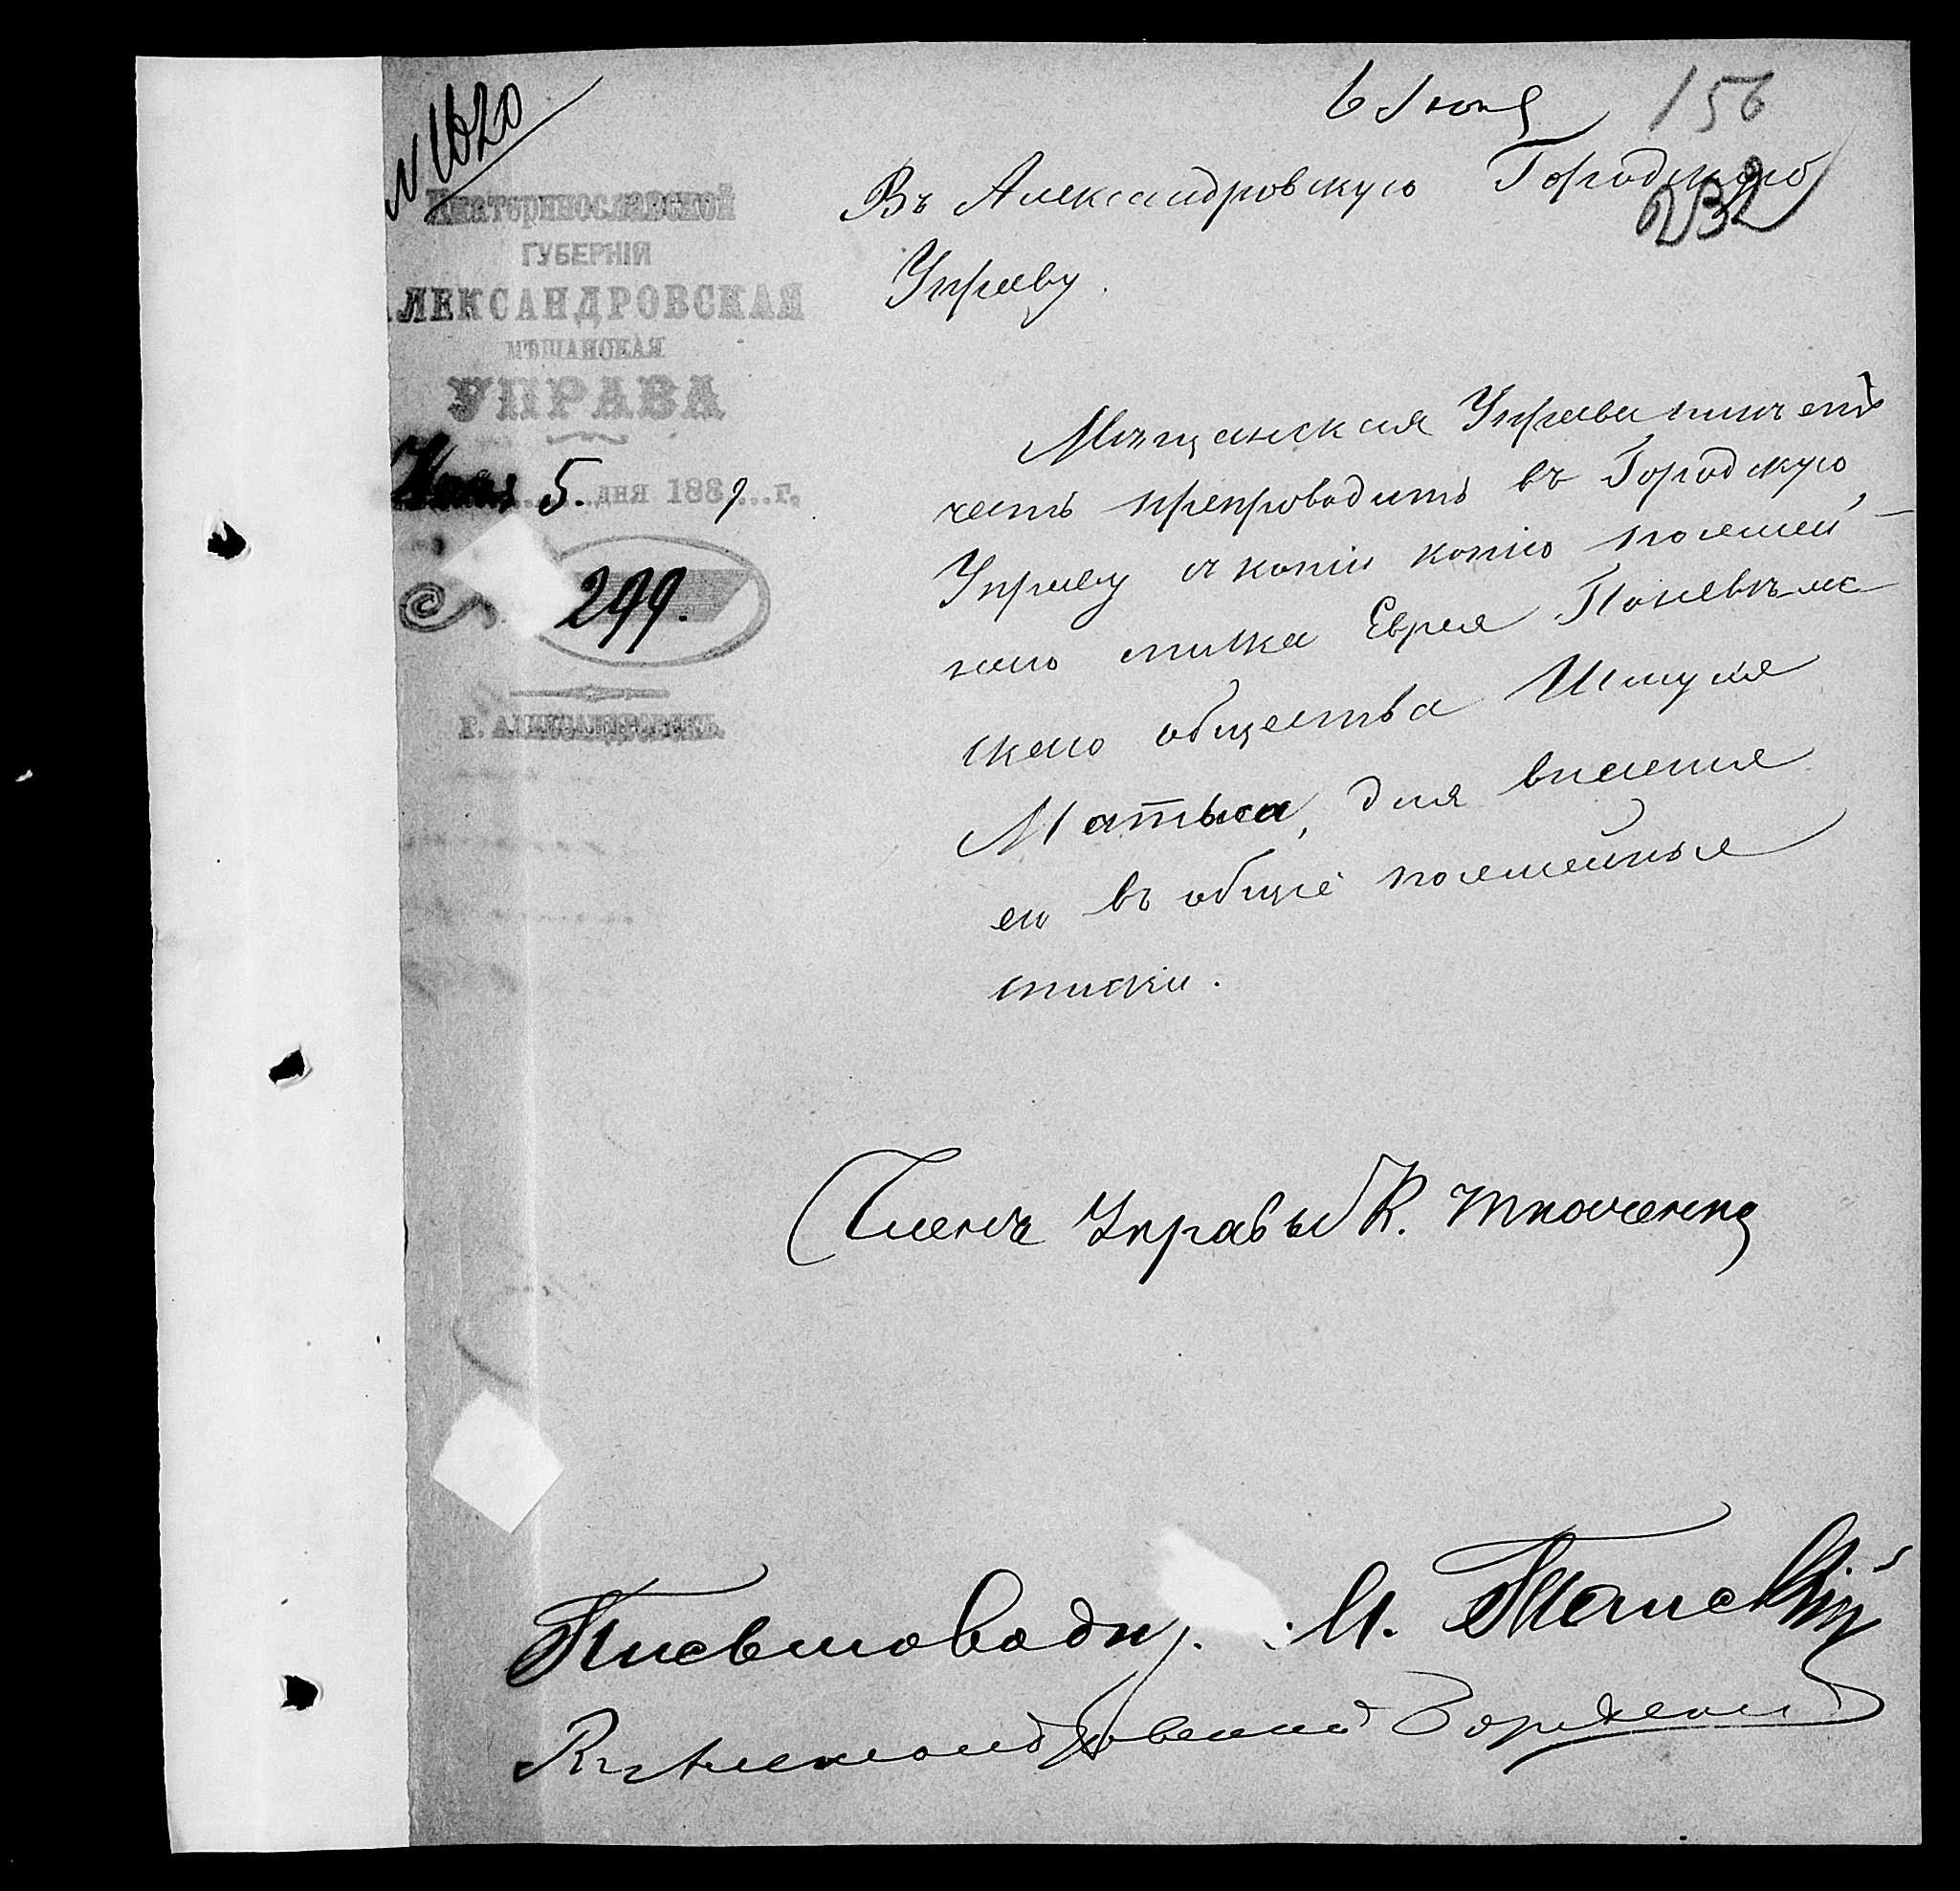 № 1620
6 Іюня
156
232
Екатеринославской
ГУБЕРНІИ
АЛЕКСАНДРОВСКАЯ
МѢЩАНСКАЯ
УПРАВА
Іюня 5. дня 1889 г.
299.
Г. АЛЕКСАНДРОВСКЪ.
Въ Александровскую Городскую
Управу.
Мѣщанская Управа имѣетъ
честь препроводить въ Городскую
Управу копію посемей-
наго списка Еврея Поневѣж-
скаго общества Шмуля
Матыса, для внесенія
его въ общіе посемейные
списки.
Членъ Управы К. Ткаченко
Письмоводи. М.